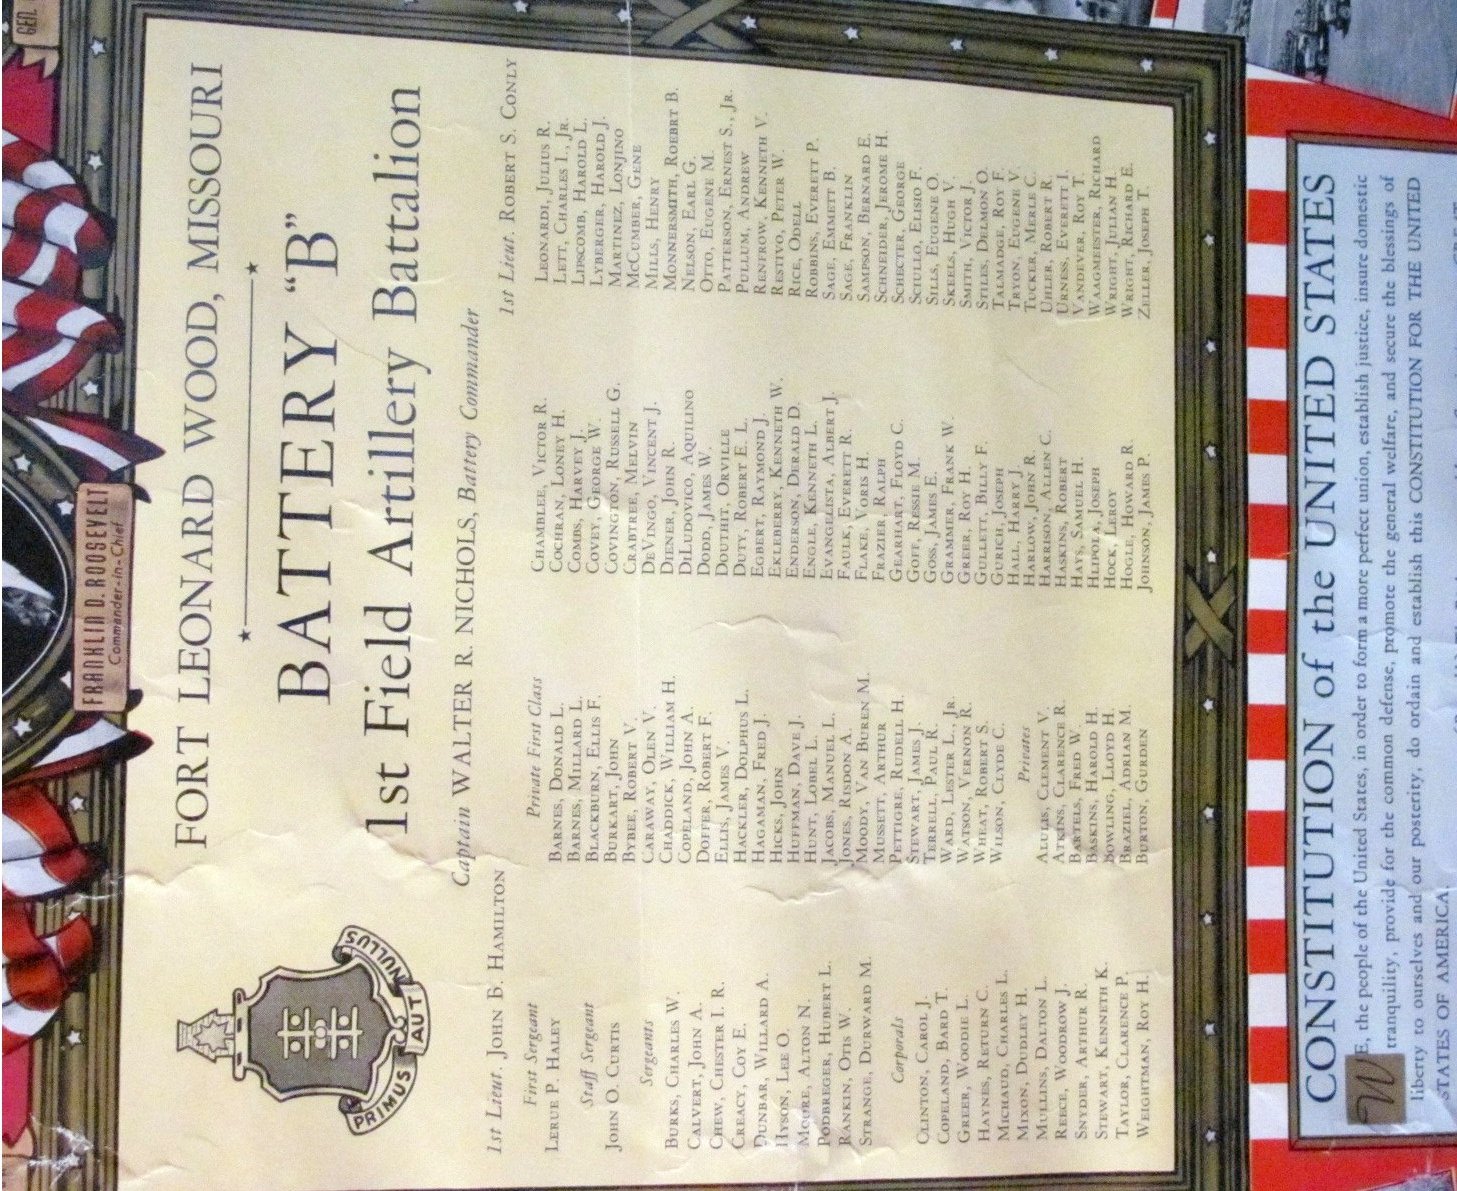 GEN.
FRANKLIN D. ROOSEVELT
Commander-in-Chief
FORT LEONARD WOOD, MISSOURI
BATTERY "B"
1st Field Artillery Battalion
PRIMUS AUT NULLUS
Captain WALTER R. NICHOLS, Battery Commander
1st Lieut. JOHN B. HAMILTON
1st Lieut. ROBERT S. CONLY
First Sergeant
LERUE P. HALEY
Staff Sergeant
JOHN O. CURTIS
Sergeants
BURKS, CHARLES W.
CALVERT, JOHN A.
CHEW, CHESTER I. R.
CREACY, COY E.
DUNBAR, WILLARD A.
HYSON, LEE O.
MOORE, ALTON N.
PODBREGER, HUBERT L.
RANKIN, OTIS W.
STRANGE, DURWARD M.
Corporals
CLINTON, CAROL J.
COPELAND, BARD T.
GREER, WOODIE L.
HAYNES, RETURN C.
MICHAUD, CHARLES L.
MIXON, DUDLEY H.
MULLINS, DALTON L.
REECE, WOODROW J.
SNYDER, ARTHUR R.
STEWART, KENNETH K.
TAYLOR, CLARENCE P.
WEIGHTMAN, ROY H.
Private First Class
BARNES, DONALD L.
BARNES, MILLARD L.
BLACKBURN, ELLIS F.
BURKART, JOHN
BYBEE, ROBERT V.
CARAWAY, OLEN V.
CHADDICK, WILLIAM H.
COPELAND, JOHN A.
DOFFER, ROBERT F.
ELLIS, JAMES V.
HACKLER, DOLPHUS L.
HAGAMAN, FRED J.
HICKS, JOHN
HUFFMAN, DAVE J.
HUNT, LOBEL L.
JACOBS, MANUEL L.
JONES, RISDON A.
MOODY, VAN BUREN M.
MUSSETT, ARTHUR
PETTIGRE, RUDELL H.
STEWART, JAMES J.
TERRELL, PAUL R.
WARD, LESTER L., JR
WATSON, VERNON R.
WHEAT, ROBERT S.
WILSON, CLYDE C.
Privates
ALULIS, CLEMENT V.
ATKINS, CLARENCE R.
BARTELS, FRED W.
BASKINS, HAROLD H.
BOWLING, LLOYD H.
BRAZIEL, ADRIAN M.
BURTON, GURDEN
CHAMBLEE, VICTOR R.
COCHRAN, LONEY H.
COMBS, HARVEY J.
COVEY, GEORGE W.
COVINGTON, RUSSELL G.
CRABTREE, MELVIN
DEVINGO, VINCENT J.
DIENER, JOHN R.
DILUDOVICO, AQUILINO
DODD, JAMES W.
DOUTHIT, ORVILLE
DUTY, ROBERT E. L.
EGBERT, RAYMOND J.
EKLEBERRY, KENNETH W.
ENDERSON, DERALD D.
ENGLE, KENNETH L.
EVANGELISTA, ALBERT J.
FAULK, EVERETT R.
FLAKE, VORIS H.
FRAZIER, RALPH
GEARHART, FLOYD C.
GOFF, RESSIE M.
GOSS, JAMES E.
GRAMMER, FRANK W.
GREER, ROY H.
GULLETT, BILLY F.
GURICH, JOSEPH
HALL, HARRY J.
HARLOW, JOHN R.
HARRISON, ALLEN C.
HASKINS, ROBERT
HAYS, SAMUEL H.
HLIPOLA, JOSEPH
HOCK, LEROY
HOGLE, HOWARD R.
JOHNSON, JAMES P.
LEONARDI, JULIUS R.
LETT, CHARLES I., JR.
LIPSCOMB, HAROLD L.
LYBERGER, HAROLD J.
MARTINEZ, LONJINO
MCCUMBER, GENE
MILLS, HENRY
MONNERSMITH, ROEBRT B.
NELSON, EARL G.
OTTO, EUGENE M.
PATTERSON, ERNEST S., JR.
PULLUM, ANDREW
RENFROW, KENNETH V.
RESTIVO, PETER W.
RICE, ODELL
ROBBINS, EVERETT P.
SAGE, EMMETT B.
SAGE, FRANKLIN
SAMPSON, BERNARD E.
SCHNEIDER, JEROME H.
SCHECTER, GEORGE
SCIULLO, ELISIO F.
SILLS, EUGENE O.
SKEELS, HUGH V.
SMITH, VICTOR J.
STILES, DELMON O.
TALAMADGE, ROY F.
TRYON, EUGENE V.
TUCKER, MERLE C.
UHLER, ROBERT R.
URNESS, EVERETT I.
VANDEVER, ROY T.
WAAGMEESTER, RICHARD
WRIGHT, JULIAN H.
WRIGHT, RICHARD E.
ZELLER, JOSEPH T.
CONSTITUTION of the UNITED STATES
WE, the people of the United States, in order to form a more perfect union, establish justice, insure domestic
tranquility, provide for the common defense, promote the general welfare, and secure the blessings of
liberty to ourselves and our posterity, do ordain and establish this CONSTITUTION FOR THE UNITED
STATES OF AMERICA.